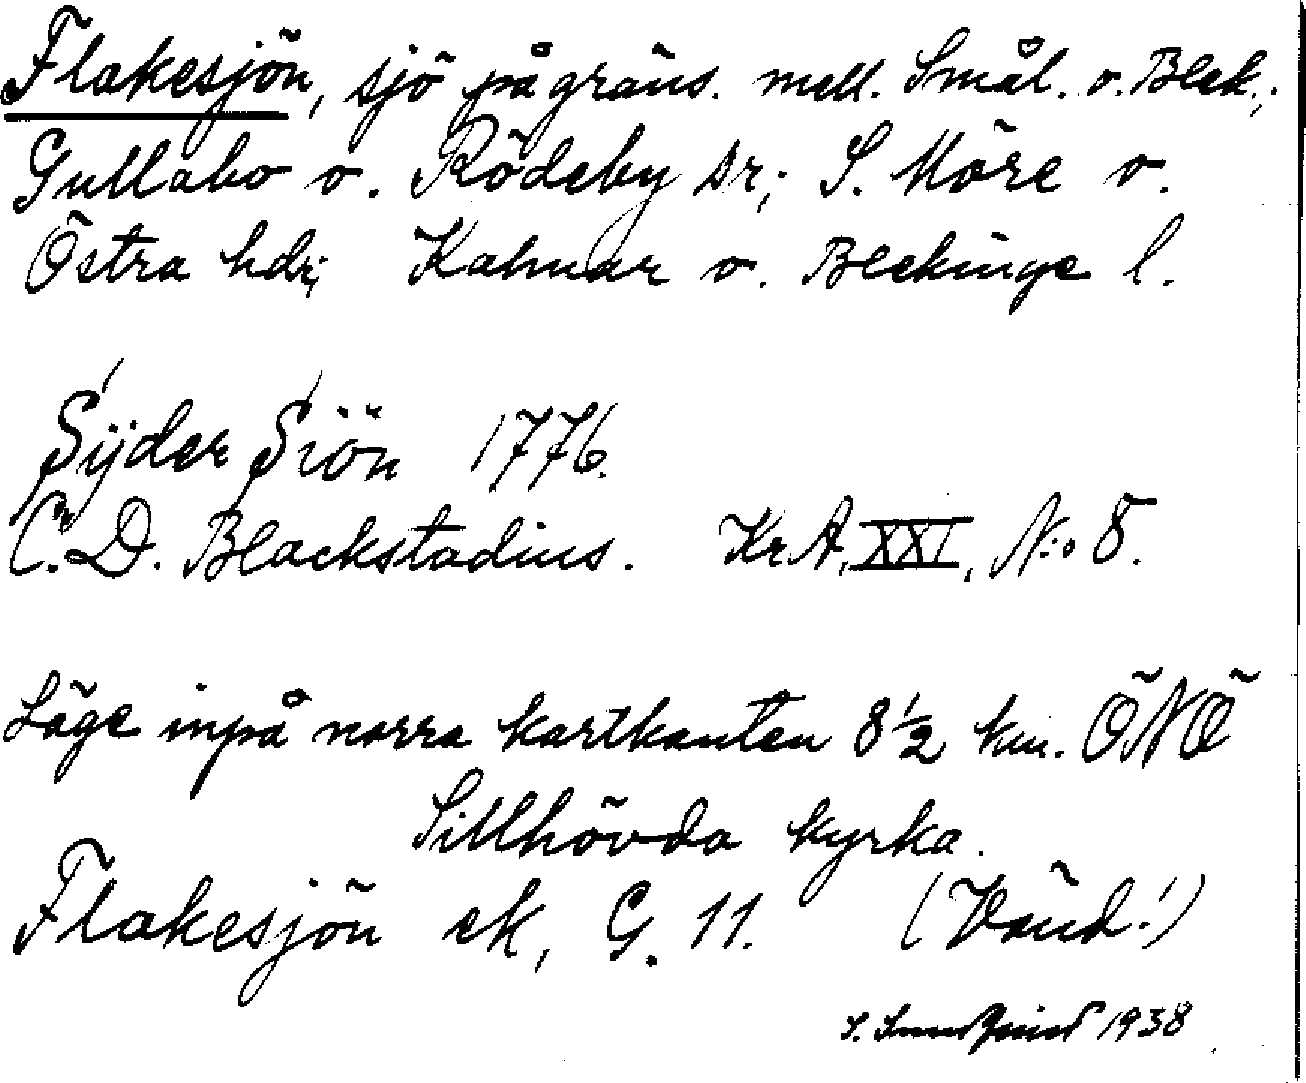 Flakesjön, sjö på gräns. mell. Smål. o. Blek.;
Gullabo o. Rödeby sr; S. Möre o.
Östra hdr; Kalmar o. Blekinge l.
Sÿder Siön 1776.
C. D. Blackstadius. Kr.A. XXI, N:o 8.
Läge inpå norra kartkanten 8½ km. ÖNÖ
Sillhövda kyrka.
Flakesjön ek, G. 11. (Vänd!)
S. 1938